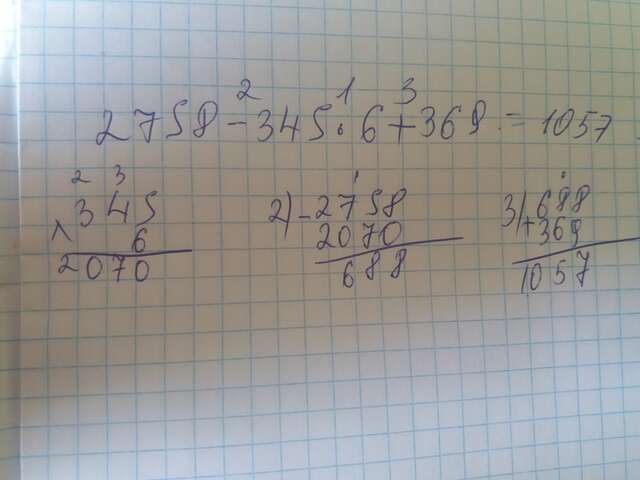 2 1 3
2758 - 345 · 6 + 369 = 1057
2 3
× 345
6
2070
2) - 2758
2070
688
3) 688
+ 369
1057